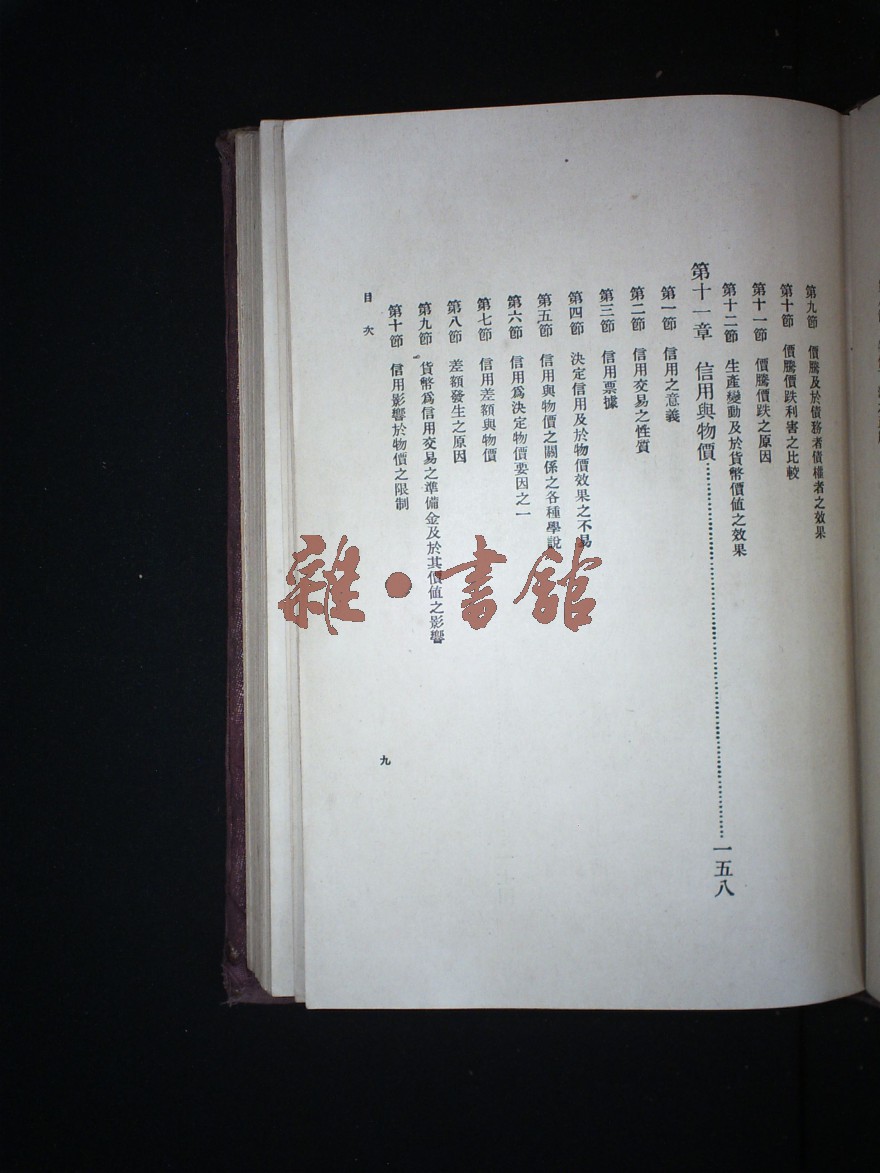 第九節 價騰及於債務者債權者之效果
第十節 價騰價跌利害之比較
第十一節 價騰價跌之原因
第十二節 生產變動及於貨幣價値之效果
第十一章 信用與物價……一五八
第一節 信用之意義
第二節 信用交易之性質
第三節 信用票據
第四節 決定信用及於物價效果之不易
第五節 信用與物價之關係之各種學說
第六節 信用爲決定物價要因之一
第七節 信用差額與物價
第八節 差額發生之原因
第九節 貨幣爲信用交易之準備金及於其價値之影響
第十節 信用影響於物價之限制
目次
九
雜·書館